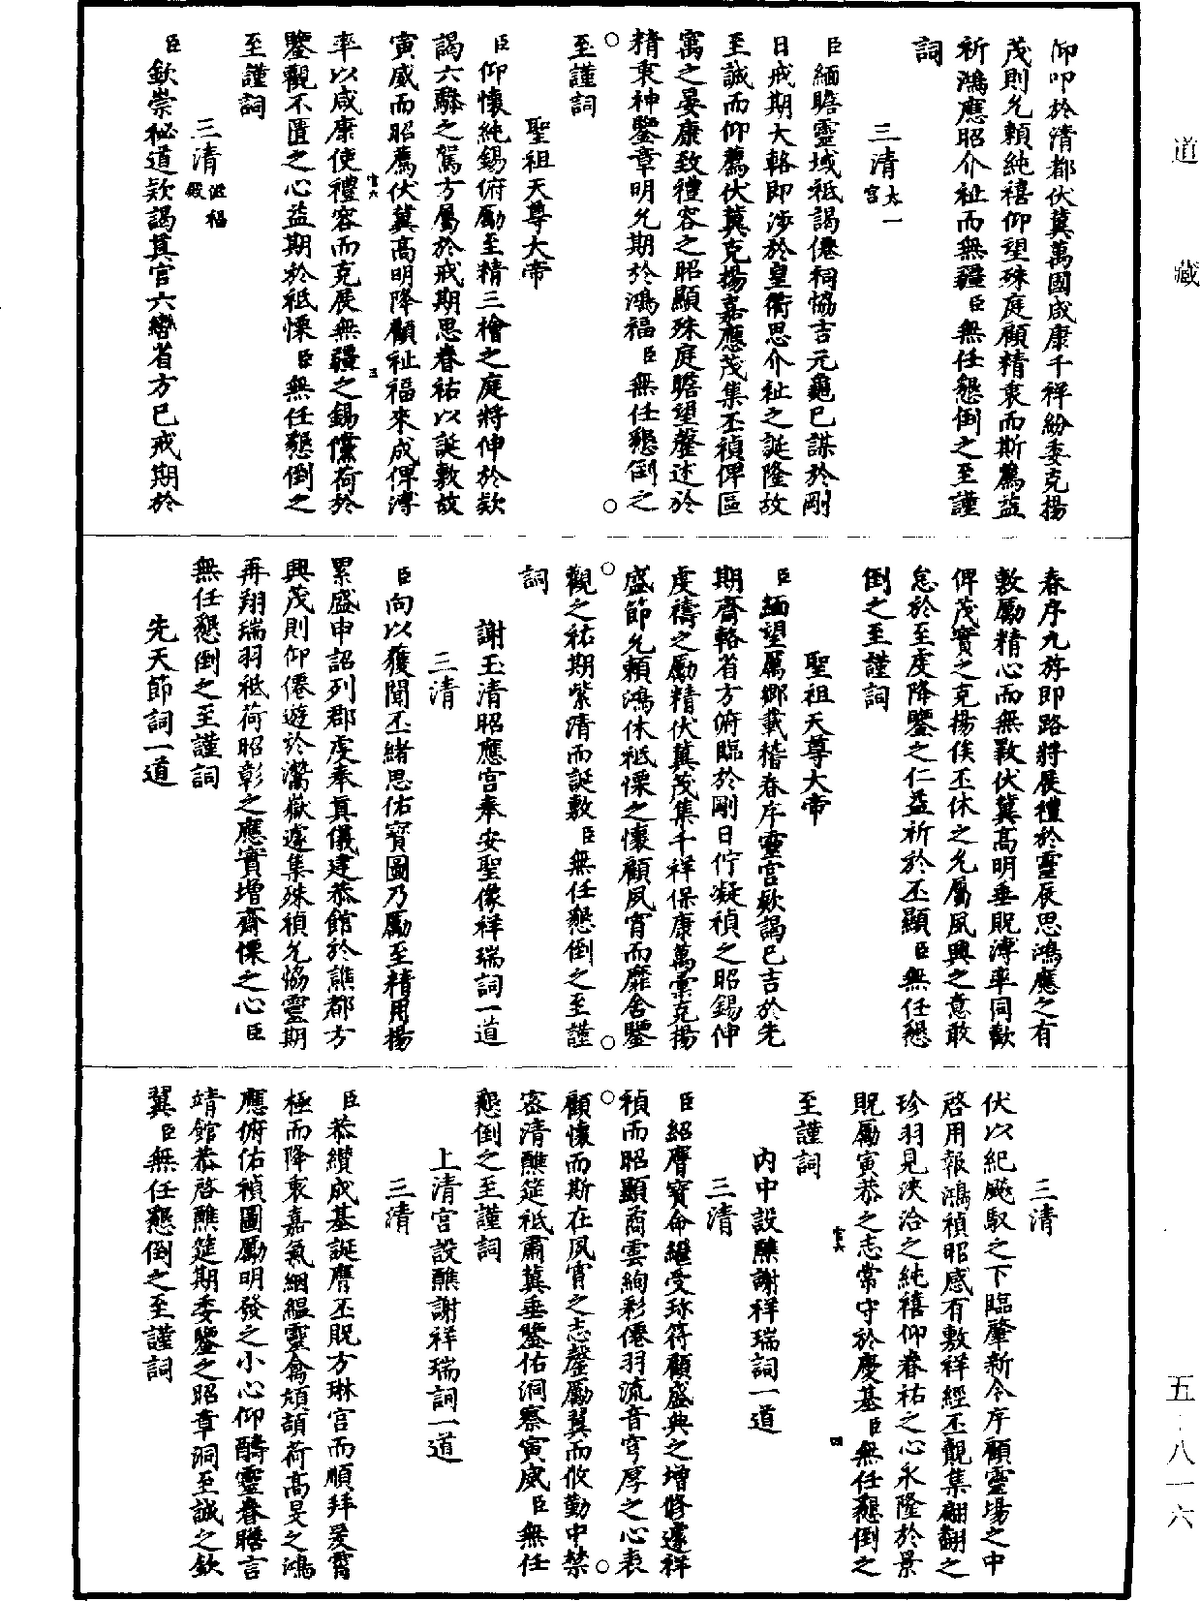 道藏
仰叩於清都伏冀萬國咸康千祥紛委克揚
茂則允賴純禧仰望殊庭顧精衷而斯篤益
祈鴻應昭介祉而無疆臣無任懇倒之至謹
詞
三清太一宮
臣緬瞻靈域祗謁僊祠協吉元龜巳謀於剛
日戒期大輅即涉於皇衢思介祉之誕隆故
至誠而仰薦伏冀克揚嘉應茂集丕禎俾區
寓之晏康致禮容之昭顯殊庭瞻望罄述於
精衷神鑒章明允期於鴻福臣無任懇倒之
至謹詞
聖祖天尊大帝
臣仰懷純錫俯勵至精三檜之庭將伸於欵
謁六騑之駕方屬於戒期思眷祐以誕敷故
寅威而昭薦伏冀高明降顧祉福來成俾溥
率以咸康使禮容而克展無疆之錫儻荷於
鑒觀不匱之心益期於祗慄臣無任懇倒之
至謹詞
三清誕福殿
臣欽崇祕道欵謁真宮六轡省方已戒期於
春序九斿即路將展禮於靈辰思鴻應之有
敷勵精心而無斁伏冀高明垂貺溥率同歡
俾茂實之克揚俟丕休之允屬夙興之意敢
怠於至虔降鑒之仁益祈於丕顯臣無任懇
倒之至謹詞
聖祖天尊大帝
臣緬望厲鄉載稽春序靈宮欵謁巳吉於先
期齋輅省方俯臨於剛日佇凝禎之昭錫伸
虔禱之勵精伏冀茂集千祥保康萬彙克揚
盛節允賴鴻休祗慄之懷顧夙宵而靡舍鑒
觀之祐期紫清而誕敷臣無任懇倒之至謹
詞
謝玉清昭應宮奉安聖像祥瑞詞一道
三清
臣向以獲聞丕緒思佑寶圖乃勵至精用揚
累盛申詔列郡虔奉真儀建恭館於譙都方
興茂則仰僊遊於灊嶽遽集殊禎允協靈期
再翔瑞羽祗荷昭彰之應實增齋慄之心臣
無任懇倒之至謹詞
先天節詞一道
三清
伏以紀飈馭之下臨肇新令序顧靈場之中
啓用報鴻禎昭感有敷祥經丕覩集翩翻之
珍羽見浹洽之純禧仰眷祐之心永隆於景
貺勵寅恭之志常守於慶基臣無任懇倒之
至謹詞
內中設醮謝祥瑞詞一道
三清
臣紹膺寶命繼受珎符顧盛典之增修遽祥
禎而昭顯矞雲絢彩僊羽流音穹厚之心表
顧懷而斯在夙宵之志罄勵翼而攸勤中禁
宻清醮筵祗肅冀垂鑒佑洞察寅威臣無任
懇倒之至謹詞
上清宮設醮謝祥瑞詞一道
三清
臣恭纘成基誕膺丕貺方琳宮而順拜爰霄
極而降衷嘉氣絪緼靈禽頏頡荷高旻之鴻
應俯佑禎圖勵明發之小心仰酬靈眷瞻言
靖館恭啓醮筵期委鑒之昭章洞至誠之欽
翼臣無任懇倒之至謹詞
五·八一六